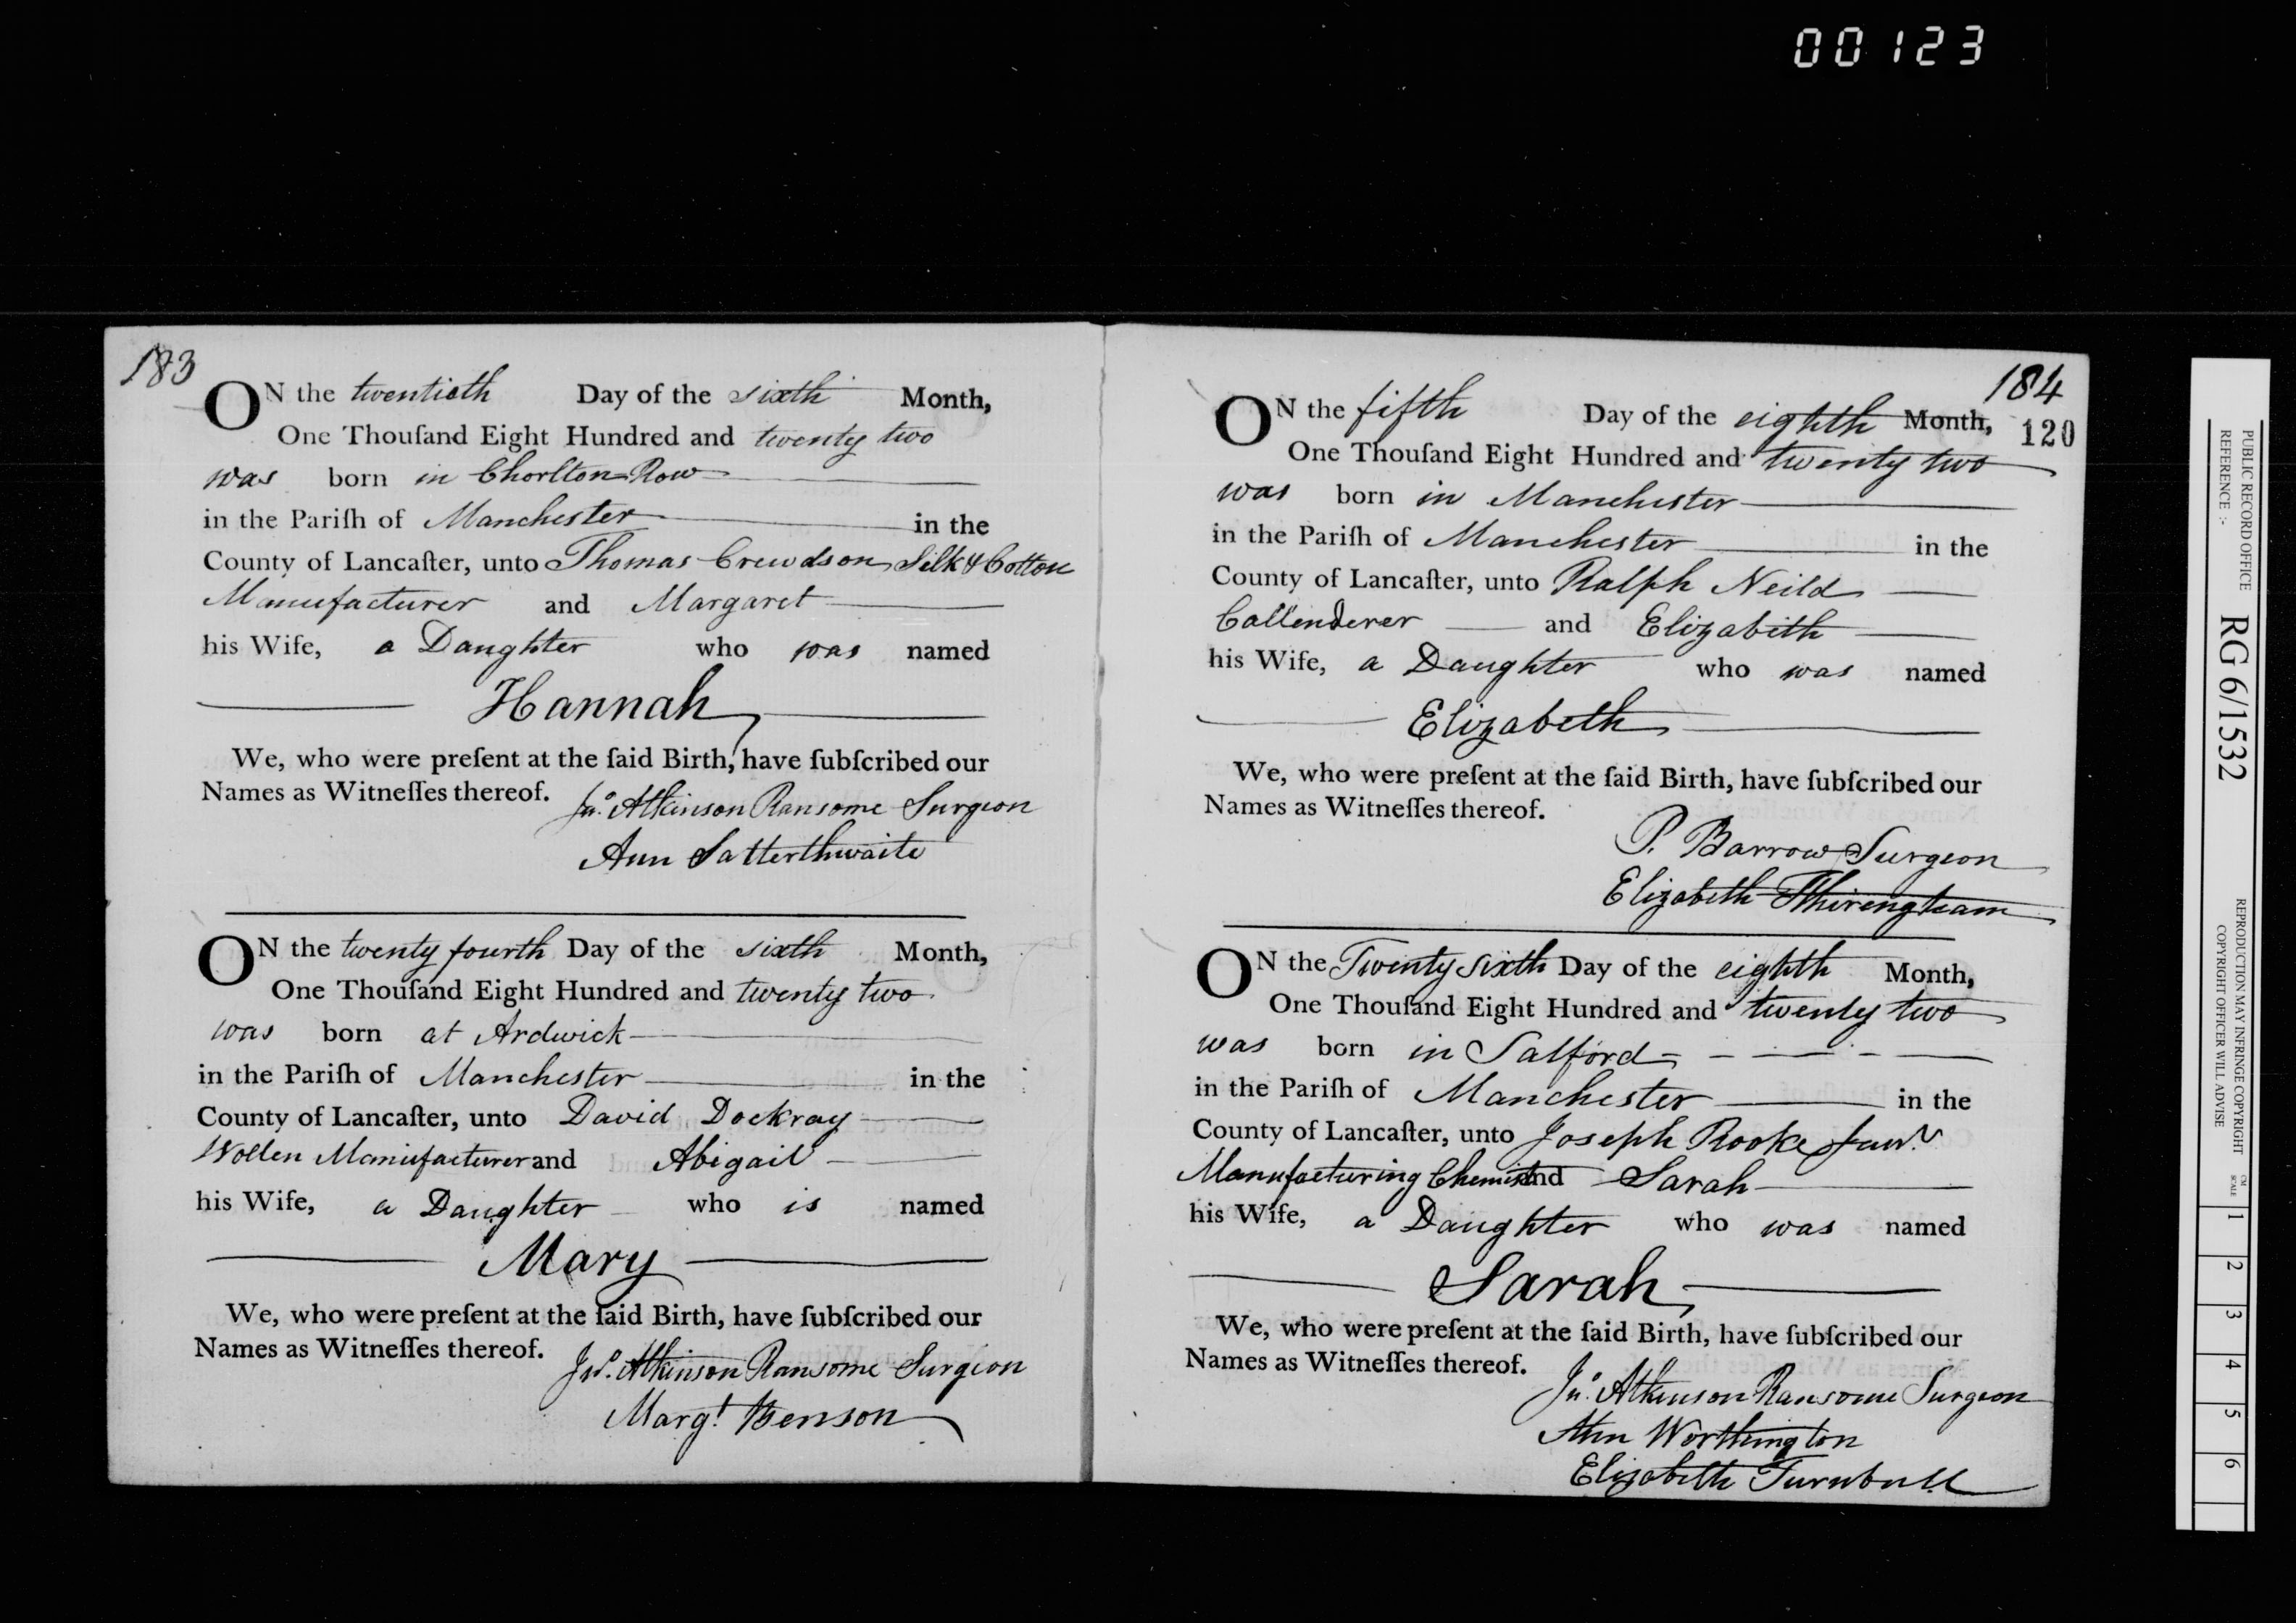 00123
183
ON the twentieth Day of the sixth Month,
One Thouſand Eight Hundred and twenty two
was born in Chorlton Row
in the Pariſh of Manchester in the
County of Lancaſter, unto Thomas Crewdson Silk & Cotton
Manufacturer and Margaret
his Wife, a Daughter who was named
Hannah
We, who were preſent at the ſaid Birth, have ſubſcribed our
Names as Witneſſes thereof.
Jnº. Atkinson Ransome Surgeon
Ann Satterthwaite
ON the twenty fourth Day of the sixth Month,
One Thouſand Eight Hundred and twenty two
was born at Ardwick
in the Pariſh of Manchester in the
County of Lancaſter, unto David Dockray
Wollen Manufacturer and Abigail
his Wife, a Daughter who is named
Mary
We, who were preſent at the ſaid Birth, have ſubſcribed our
Names as Witneſſes thereof.
Jnº. Atkinson Ransome Surgeon
Margt. Benson
184
120
ON the fifth Day of the eighth Month,
One Thouſand Eight Hundred and twenty two
was born in Manchester
in the Pariſh of Manchester in the
County of Lancaſter, unto Ralph Neild
Callenderer and Elizabeth
his Wife, a Daughter who was named
Elizabeth
We, who were preſent at the ſaid Birth, have ſubſcribed our
Names as Witneſſes thereof.
P. Barrow Surgeon
Elizabeth
ON the Twenty sixth Day of the eighth Month,
One Thouſand Eight Hundred and twenty two
was born in Salford
in the Pariſh of Manchester in the
County of Lancaſter, unto Joseph Rooke Junr.
Manufacturing Chemist and Sarah
his Wife, a Daughter who was named
Sarah
We, who were preſent at the ſaid Birth, have ſubſcribed our
Names as Witneſſes thereof.
Jnº. Atkinson Ransome Surgeon
Ann Worthington
Elizabeth Turnbull
PUBLIC RECORD OFFICE
REFERENCE :-
RG 6/1532
REPRODUCTION MAY INFRINGE COPYRIGHT
COPYRIGHT OFFICER WILL ADVISE
CM
SCALE
1 2 3 4 5 6